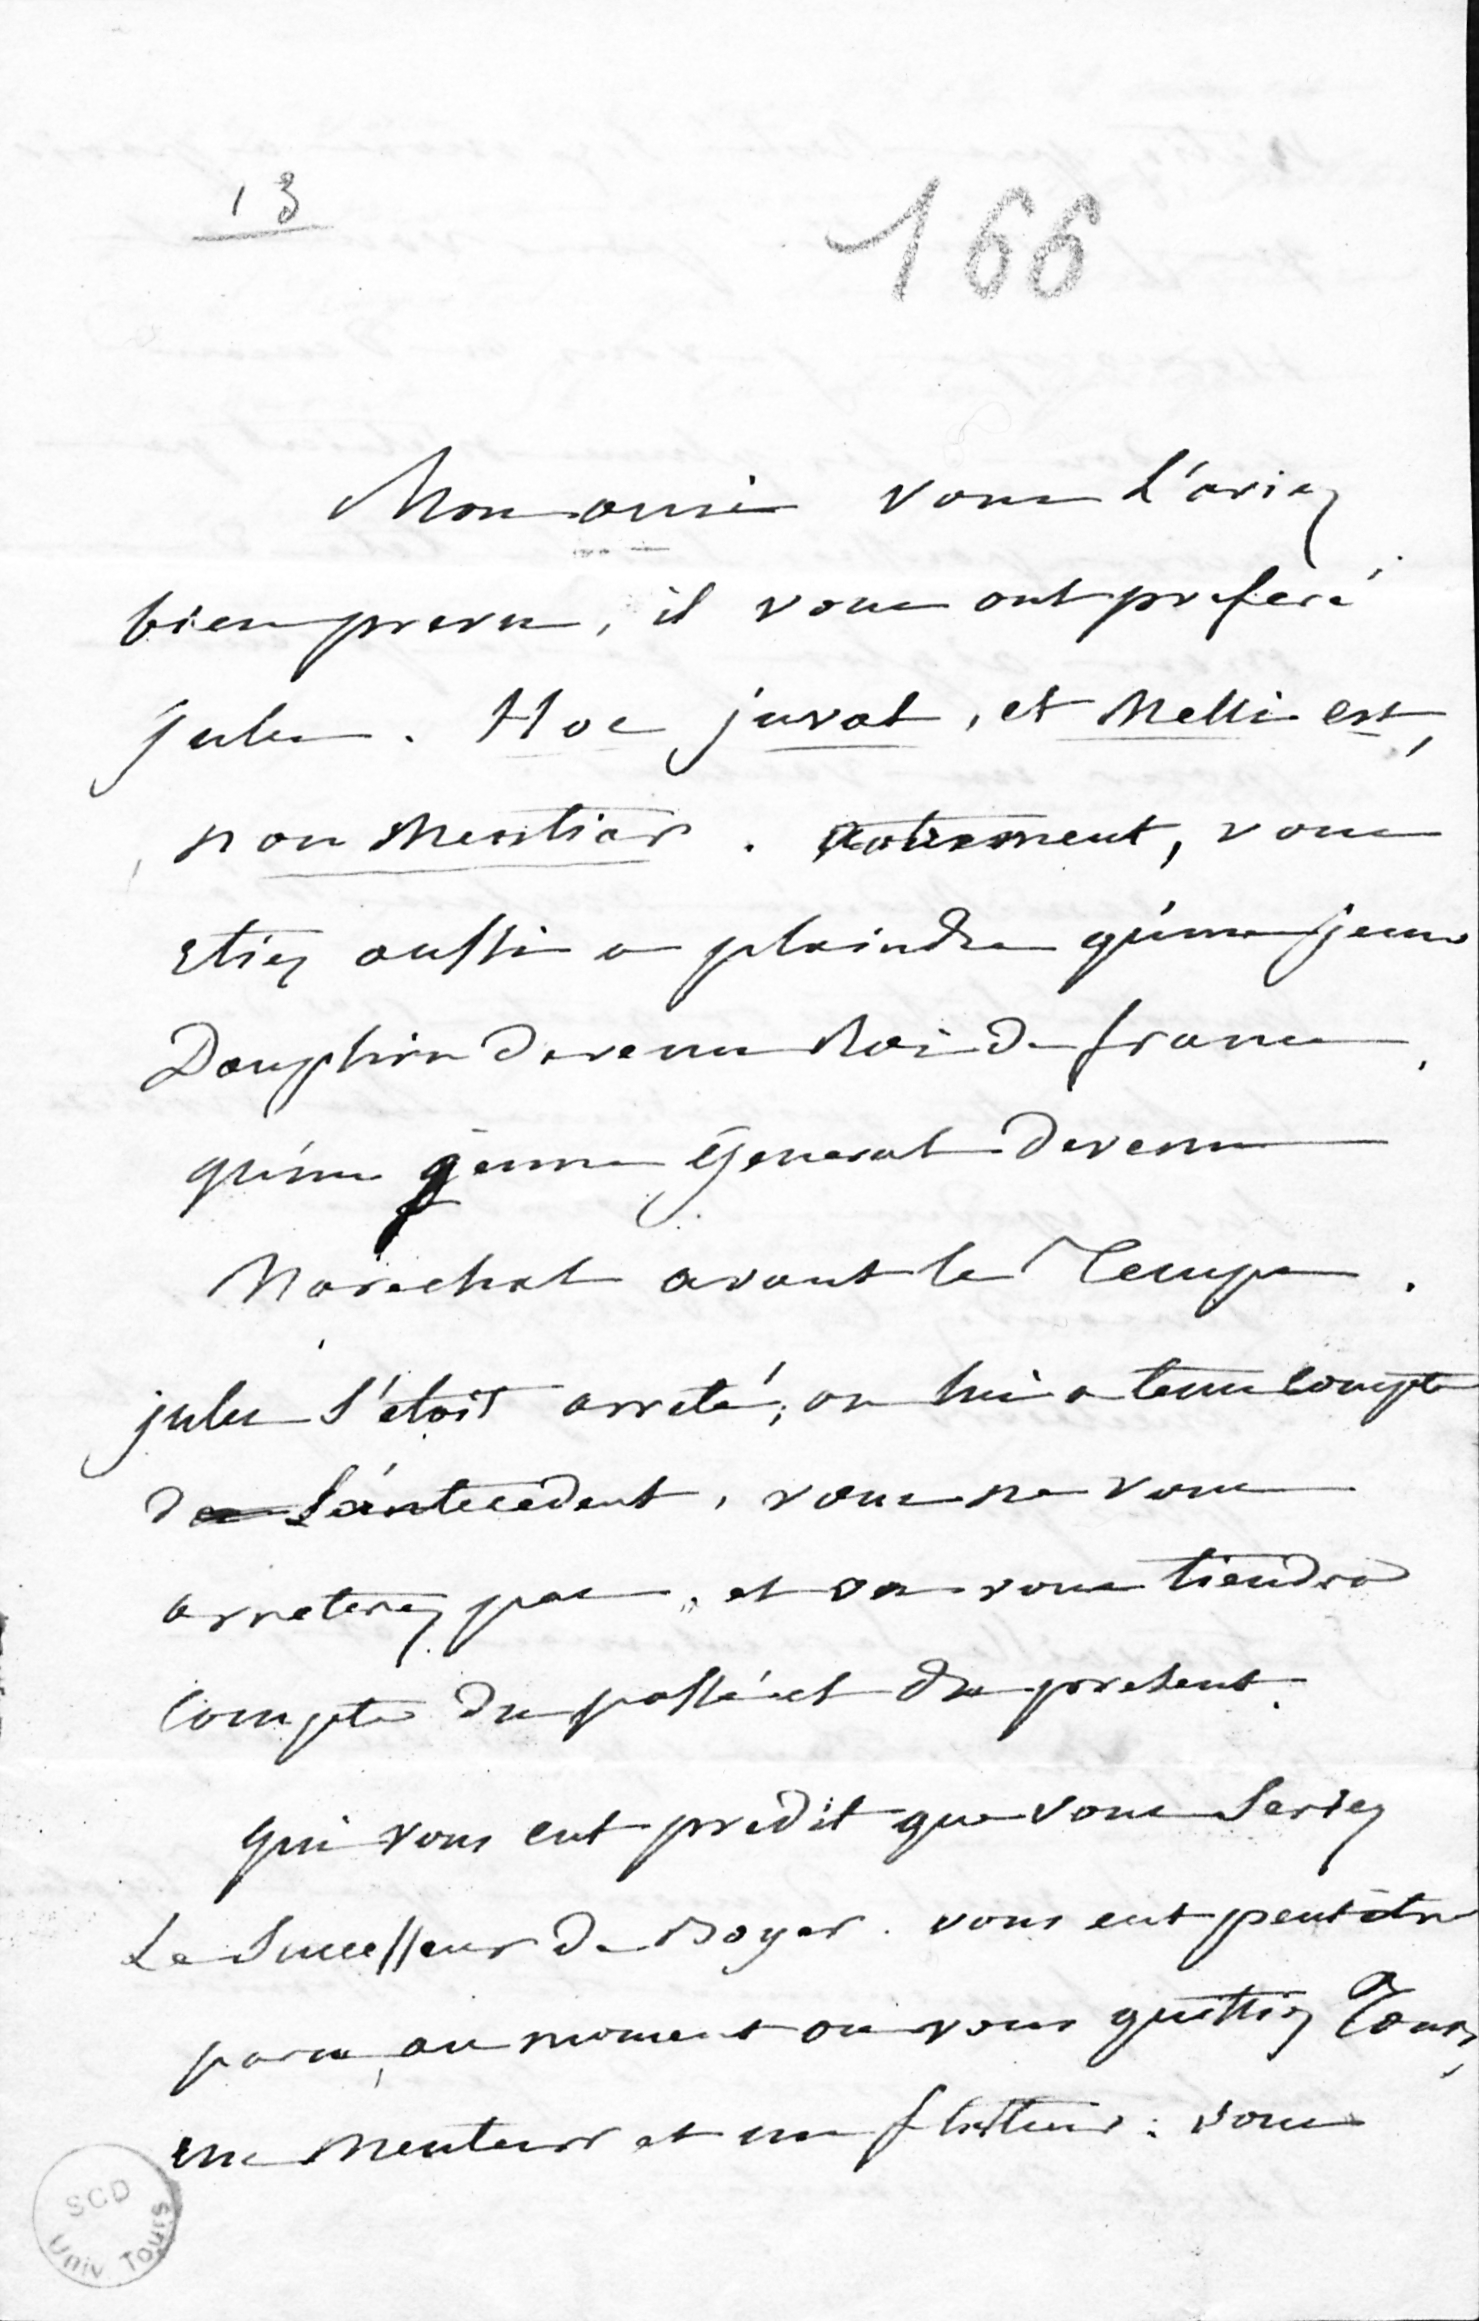 13
166
Mon ami vous l'aviez
bien prevu, il vous ont preferé
jules. Hoc juvat, et Melli est,
non Mentiar. Autrement, vous
etiez aussi a plaindre qu'un jeune
Dauphin devenu Roi de france,
qu'un jeune General devenu
Marechal avant le Temps.
jules s'etoit arreté; on lui a tenu compte
de l'antecedent, vous ne vous
arreterez pas, et on vous tiendra
compte du passé et du present.
qui vous eut predit que vous seriez
Le Successeur de Boyer. vous eut peut etre
paru, au moment ou vous quittiez Tours,
un Menteur et un flatteur: vous
SCD
Univ. Tours